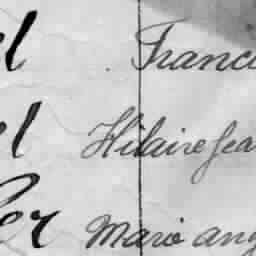 el Franc
el Hilaire Jea
er Marie ang